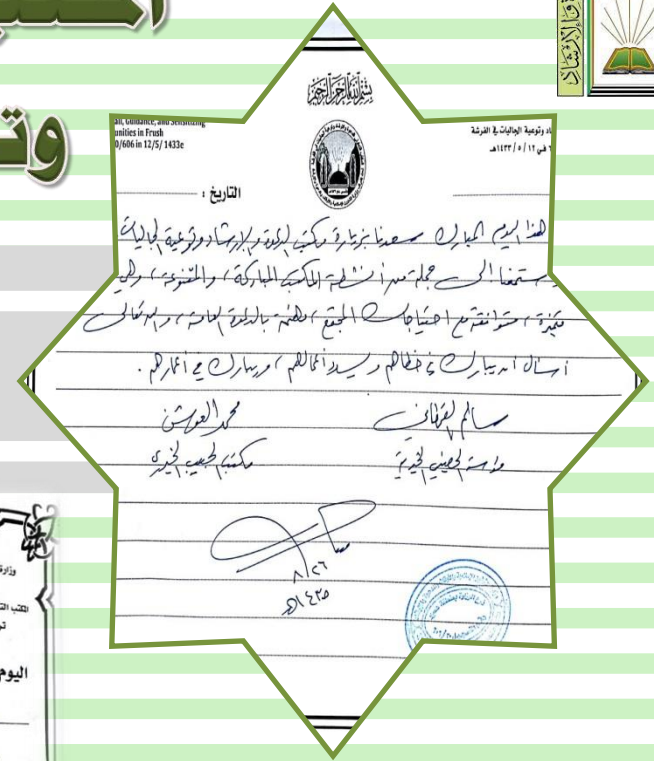 بسم الله الرحمن الرحيم
all, Guidance, and Sensitizing
unities in Frush
0/606 in 12/5/ 1433e
اد وتوعية الجاليات في الفرشة
٦ في ١٢ / ٥ / ١٤٣٣هـ
التاريخ :
لهذا اليوم المبارك سعدنا بزيارة مكتب الدعوة والإرشاد وتوعية الجاليات
استمعنا إلى جملة من أنشطة المكتب المباركة، والمتنوعة، وهي
متميزة، متوافقة مع احتياجات المجتمع، بالدعوة العامة، والله تعالى
أسأل أن يبارك في خطاهم و يسدد أعمالهم، ويبارك في أعمارهم.
سالم القحطاني
محمد العوشن
الخيرية
مكتب الخيري
٨/٢٦
١٤٣٥هـ
وت
والإرشاد
وزارة
اليوم